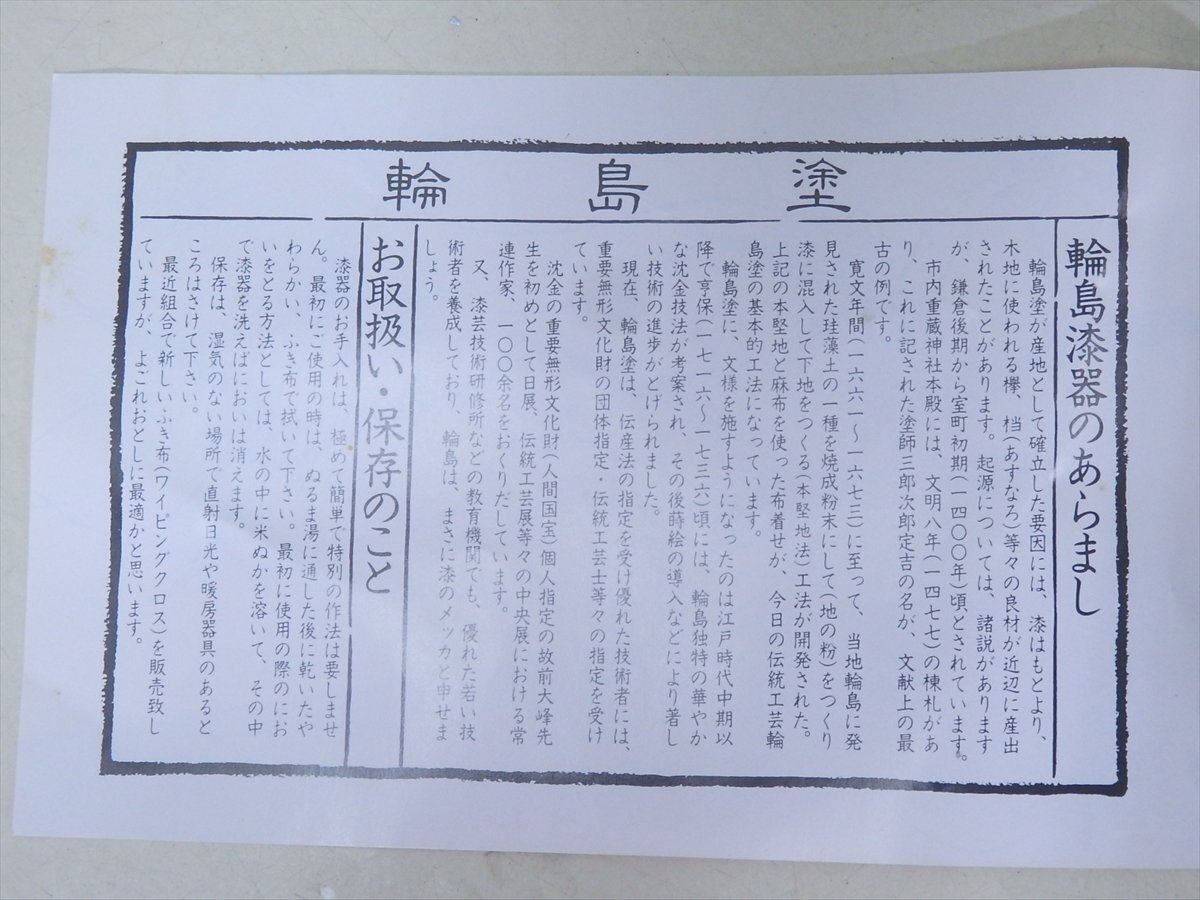 輪島塗
輪島漆器のあらまし
輪島塗が産地として確立した要因には、漆はもとより、
木地に使われる欅、档(あすなろ)等々の良材が近辺に産出
されたことがあります。起源については、諸説があります
が、鎌倉後期から室町初期(一四〇〇年)頃、とされています。
市内重蔵神社本殿には、文明八年(一四七七)の棟札があ
り、これに記された塗師三郎次郎定吉の名が、文献上の最
古の例です。
寛文年間(一六六一〜一六七三)に至って、当地輪島に発
見された珪藻土の一種を焼成粉末にして(地の粉)をつくり
漆に混入して下地をつくる(本堅地法)工法が開発された。
上記の本堅地と麻布を使った布着せが、今日の伝統工芸輪
島塗の基本的工法になっています。
輪島塗に、文様を施すようになったのは江戸時代中期以
降で享保(一七一六〜一七三六)頃には、輪島独特の華やか
な沈金技法が考案され、その後蒔絵の導入などにより著し
い技術の進歩がとげられました。
現在、輪島塗は、伝産法の指定を受け優れた技術者には、
重要無形文化財の団体指定・伝統工芸士等々の指定を受け
ています。
沈金の重要無形文化財(人間国宝)個人指定の故前大峰先
生を初めとして日展、伝統工芸展等々の中央展における常
連作家、一〇〇余名をおくりだしています。
又、漆芸技術研修所などの教育機関でも、優れた若い技
術者を養成しており、輪島は、まさに漆のメッカと申せま
しょう。
お取扱い・保存のこと
漆器のお手入れは、極めて簡単で特別の作法は要しませ
ん。最初にご使用の時は、ぬるま湯に通した後に乾いたや
わらかい、ふき布で拭いて下さい。最初に使用の際のにお
いをとる方法としては、水の中に米ぬかを溶いて、その中
で漆器を洗えばにおいは消えます。
保存は、湿気のない場所で直射日光や暖房器具のあると
ころはさけて下さい。
最近組合で新しいふき布(ワイピングクロス)を販売致し
ていますが、よごれおとしに最適かと思います。